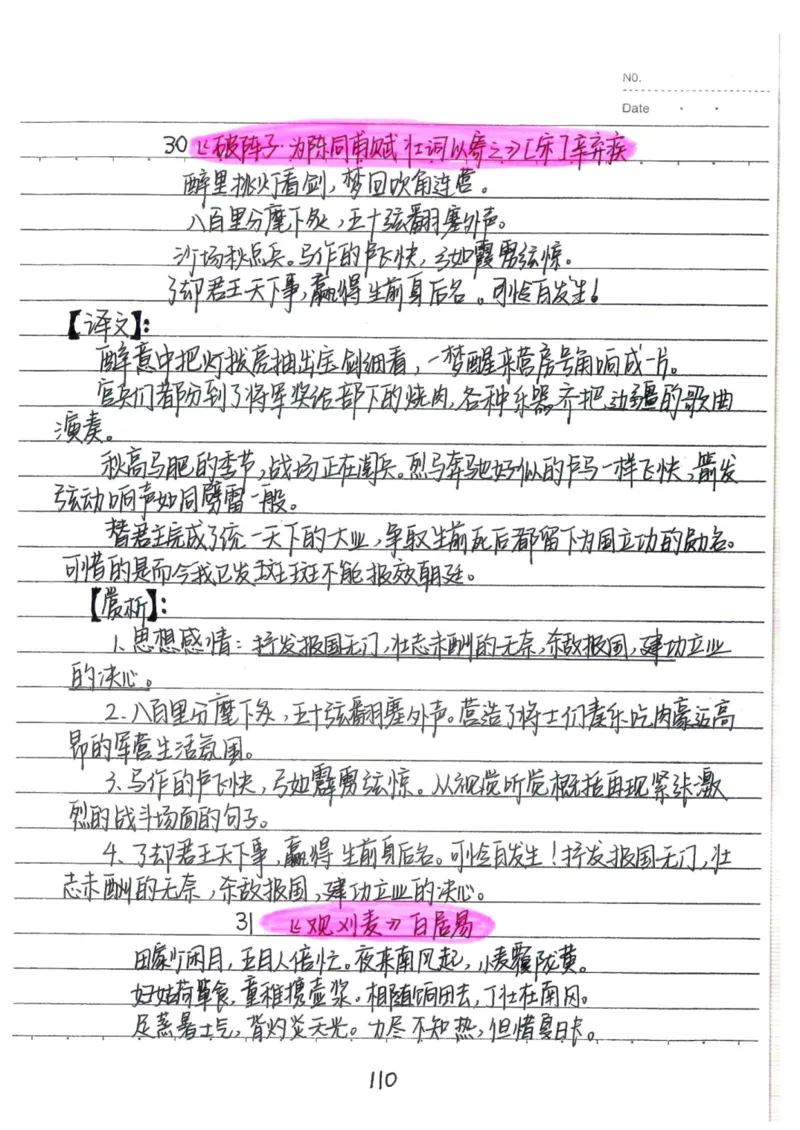 NO.
Date
30 《破阵子·为陈同甫赋壮词以寄之》[宋]辛弃疾
醉里挑灯看剑,梦回吹角连营。
八百里分麾下炙,五十弦翻塞外声。
沙场秋点兵。马作的卢飞快,弓如霹雳弦惊。
了却君王天下事,赢得生前身后名。可怜白发生!
【译文】:
醉意中把灯拨亮抽出宝剑细看,一梦醒来营房号角响成一片。
官兵们都分到了将军奖给部下的烧肉,各种乐器齐把边疆的歌曲
演奏。
秋高马肥的季节,战场正在阅兵。烈马奔驰好似的卢马一样飞快,箭发
弦动响声如同劈雷一般。
替君主完成了统一天下的大业,争取生前死后都留下为国立功的勋名。
可惜的是而今我已发斑斑不能报效朝廷。
【赏析】:
1.思想感情:抒发报国无门,壮志未酬的无奈,杀敌报国,建功立业
的决心。
2.八百里分麾下炙,五十弦翻塞外声。营造了将士们奏乐吃肉豪迈高
昂的军营生活氛围。
3.马作的卢飞快,弓如霹雳弦惊。从视觉听觉概括再现紧张激
烈的战斗场面的句子。
4.了却君王天下事,赢得生前身后名。可怜白发生!抒发报国无门,壮
志未酬的无奈,杀敌报国,建功立业的决心。
31 《观刈麦》白居易
田家少闲月,五月人倍忙。夜来南风起,小麦覆陇黄。
妇姑荷箪食,童稚携壶浆。相随饷田去,丁壮在南冈。
足蒸暑土气,背灼炎天光。力尽不知热,但惜夏日长。
110